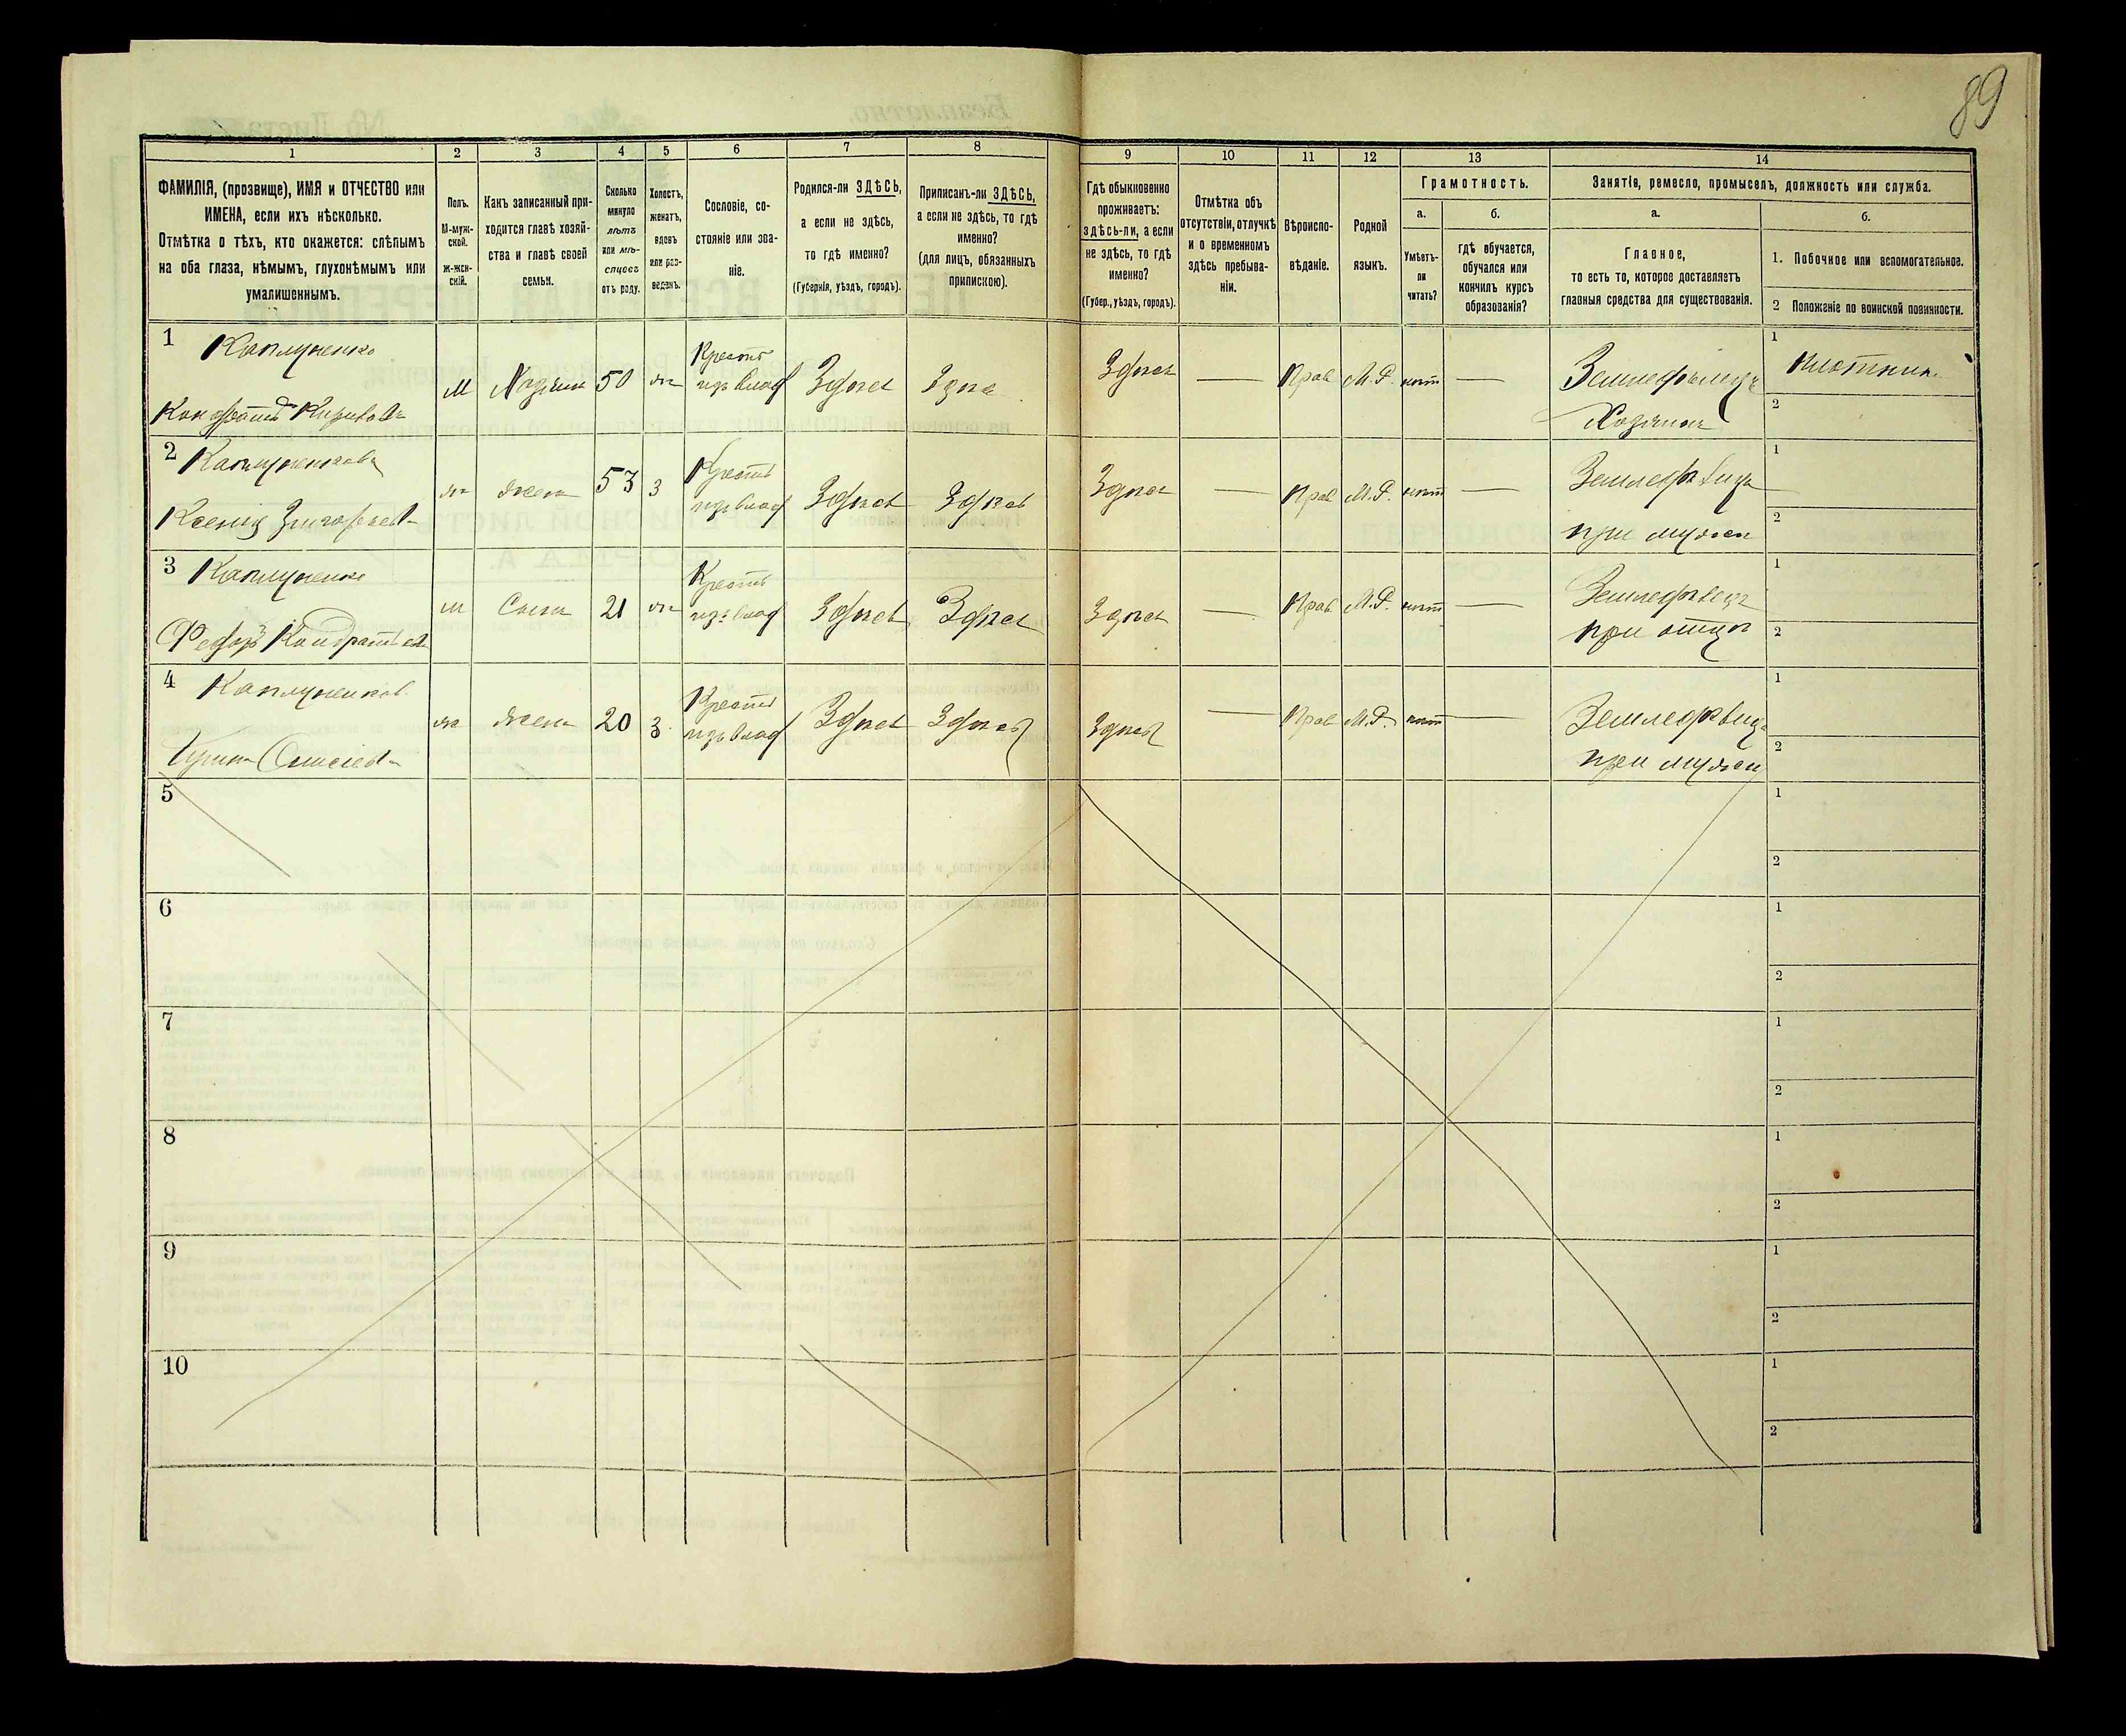 89
1 2 3 4 5 6 7 8 9 10 11 12 13 14
ФАМИЛІЯ, (прозвище), ИМЯ и ОТЧЕСТВО или
ИМЕНА, если ихъ нѣсколько.
Отмѣтка о тѣхъ, кто окажется: слѣпымъ
на оба глаза, нѣмымъ, глухонѣмымъ или
умалишеннымъ.
Полъ.
М-муж-
ской.
ж-жен-
скій.
Какъ записанный при-
ходится главѣ хозяй-
ства и главѣ своей
семьи.
Сколько
минуло
лѣтъ
или мѣ-
сяцевъ
отъ роду.
Холостъ,
женатъ,
вдовъ
или раз-
веденъ.
Сословіе, со-
стояніе или зва-
ніе.
Родился-ли ЗДѢСЬ,
а если не здѣсь,
то гдѣ именно?
(Губернія, уѣздъ, городъ).
Приписанъ-ли ЗДѢСЬ,
а если не здѣсь, то гдѣ
именно?
(для лицъ, обязанныхъ
припискою).
Гдѣ обыкновенно
проживаетъ:
здѣсь-ли, а если
не здѣсь, то гдѣ
именно?
(Губер., уѣздъ, городъ).
Отмѣтка объ
отсутствіи, отлучкѣ
и о временномъ
здѣсь пребыва-
ніи.
Вѣроиспо-
вѣданіе.
Родной
языкъ.
Грамотность.
а.
Умѣетъ-
ли
читать?
б.
гдѣ обучается,
обучался или
кончилъ курсъ
образованія?
Занятіе, ремесло, промыселъ, должность или служба.
а.
Главное,
то есть то, которое доставляетъ
главныя средства для существованія.
б.
1. Побочное или вспомогательное.
2 Положеніе по воинской повинности.
1 Каплуненко
Кондратъ
М 50 Крестъ Здѣсь Здѣсь Здѣсь — Прав М.Р. нѣтъ — Земледѣлецъ
Хозяинъ
1 Плотникъ
2
2
Ксенія
жена 53 з Крестъ Здѣсь Здѣсь Здѣсь — Прав М.Р. нѣтъ —
при мужѣ
1
2
3 Каплуненко
Федоръ
м Сынъ 21 Крестъ Здѣсь Здѣсь Здѣсь — Прав М.Р. нѣтъ —
при отцѣ
1
2
4
жена 20 з Крестъ Здѣсь Здѣсь Здѣсь — Прав М.Р. нѣтъ —
при мужѣ
1
2
5
1
2
6
1
2
7
1
2
8
1
2
9
1
2
10
1
2